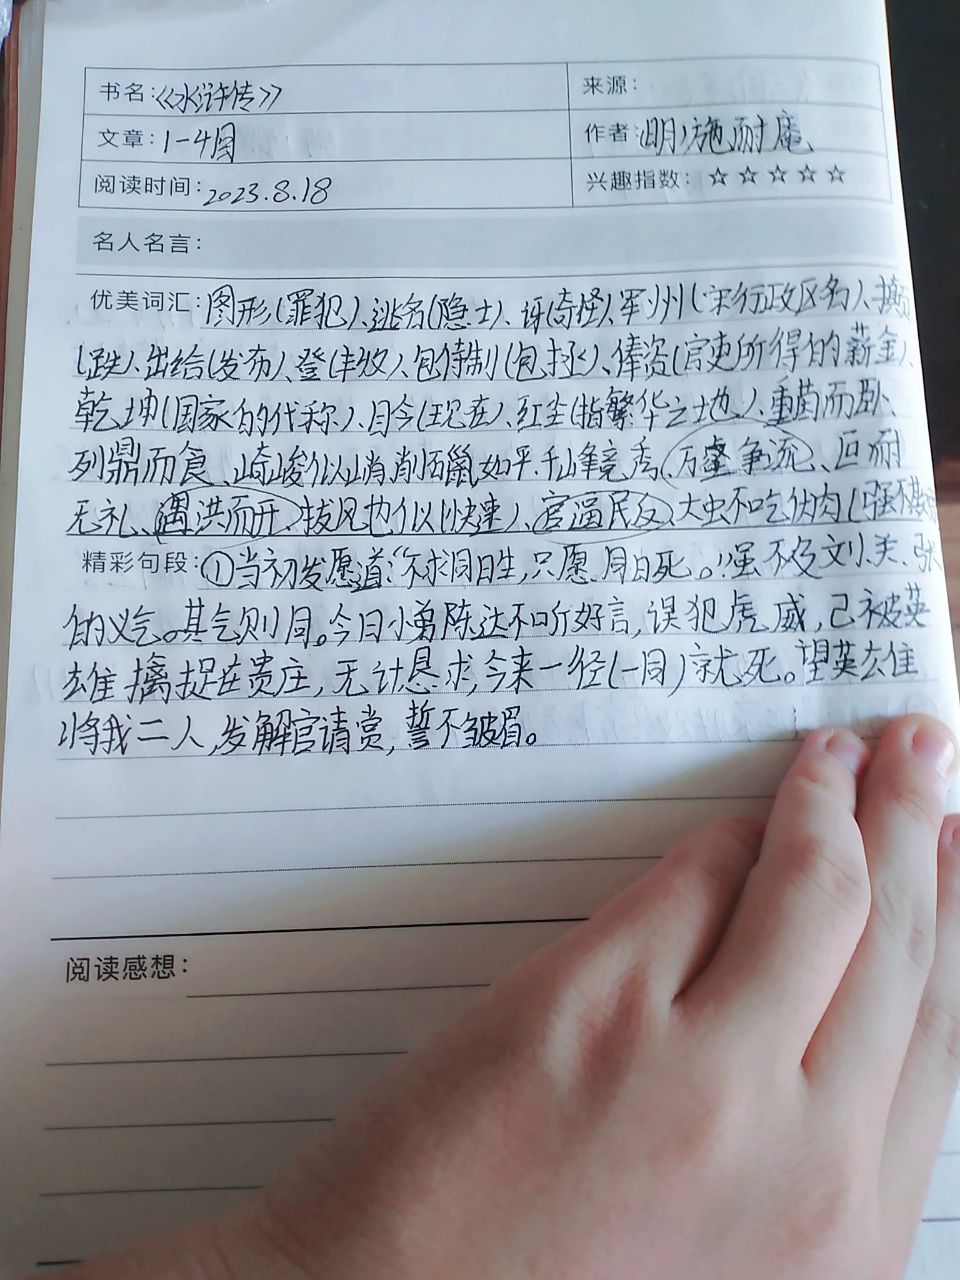 书名:《水浒传》
来源:
文章:1-4回
作者:明、施耐庵
阅读时间:2023.8.18
兴趣指数:☆☆☆☆☆
名人名言:
优美词汇:图形(罪犯)、逃名(隐士)、讶(奇怪)、军州(宋行政区名)、攧
(跌)、出给(发布)、登(丰收)、包侍制(包拯)、俸资(官吏所得的薪金)、
乾坤(国家的代称)、目今(现在)、红尘(指繁华之地)、重茵而卧、
列鼎而食、崎峻似峭、如平、千山竞秀、万壑争流、叵耐
无礼、遇洪而开、拔风也似(快速)、官逼民反、大虫不吃伏肉(强不欺
精彩句段:①当初发愿道“不求同日生,只愿同日死。”虽不及刘、关、张
的义气。其气则同。今日小弟陈达不听好言,误犯虎威,已被英
雄擒捉在贵庄,无计恳求,今来一径(一同)就死。望英雄
将我二人,发解官请赏,誓不皱眉。
阅读感想: